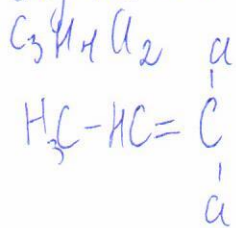 C₃H₄Cl₂
Cl
H₃C-HC=C
Cl